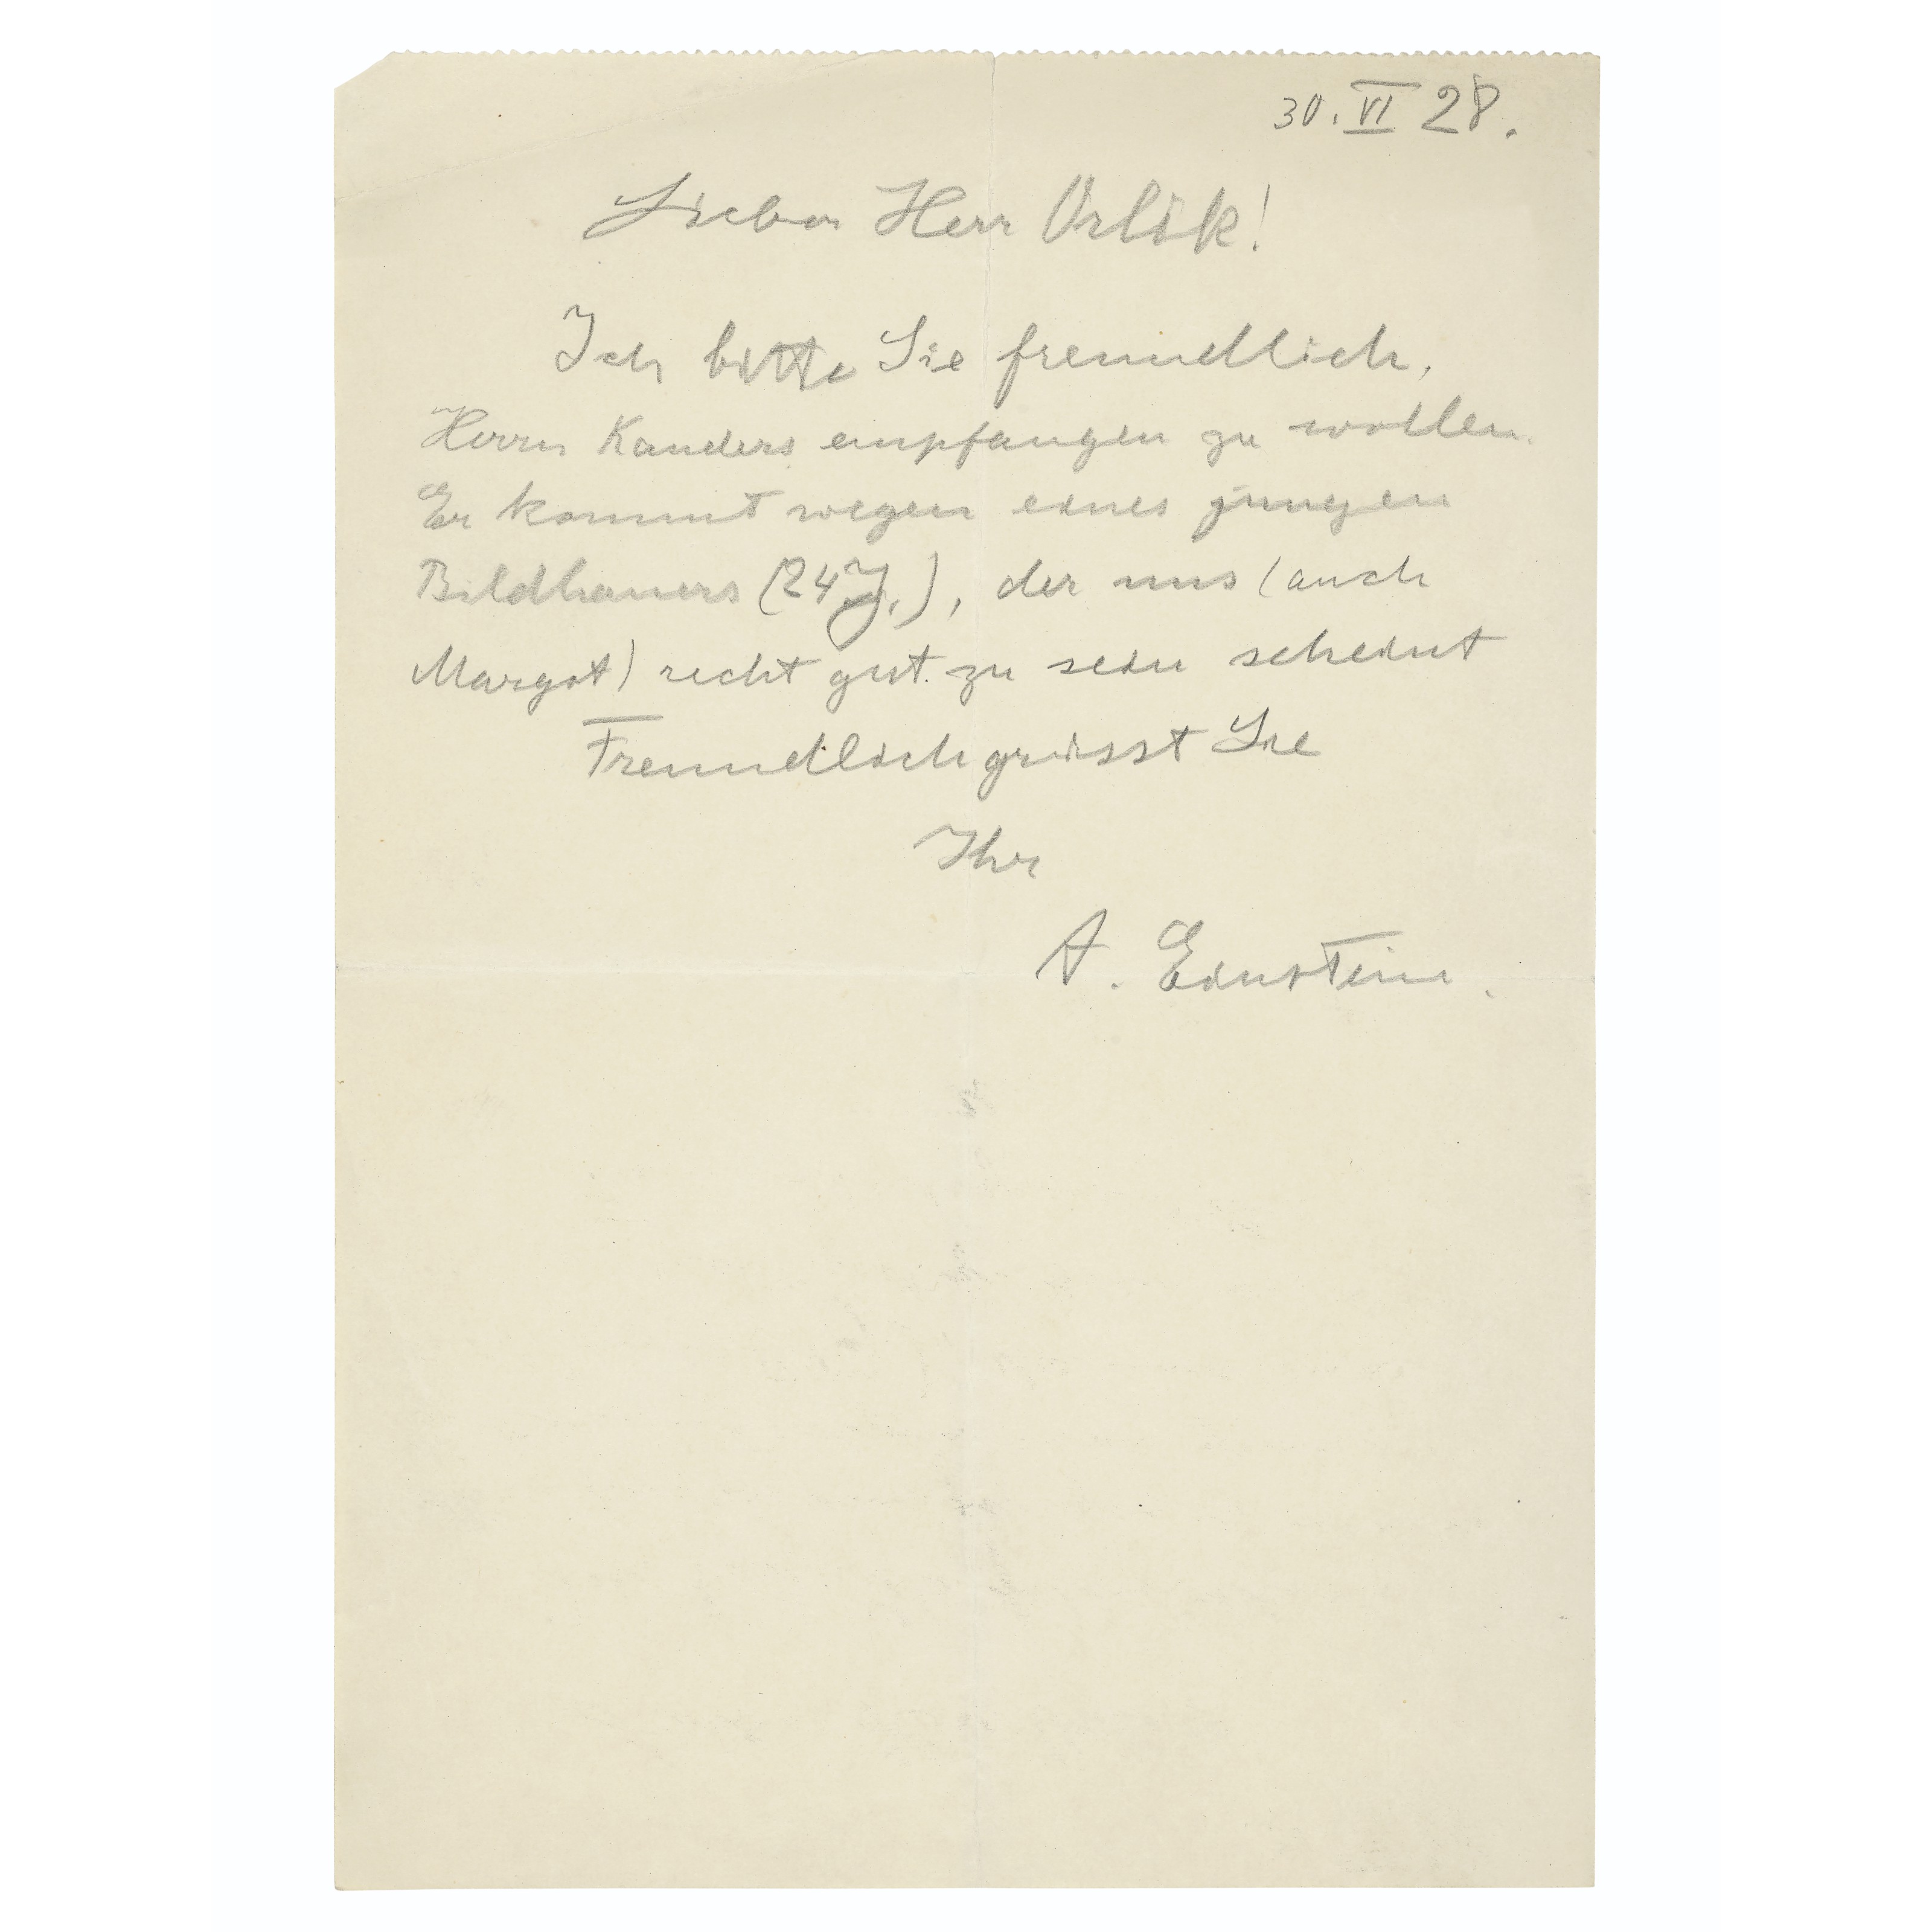 30. VI 28.
Lieber Herr Orlik!
Ich bitte Sie freundlich,
Herrn Kanders empfangen zu wollen.
Er kommt wegen eines jungen
Bildhauers (24 J.), der uns (auch
Margot) recht gut zu sein scheint
Freundlich grüsst Sie
Ihr
A. Einstein.